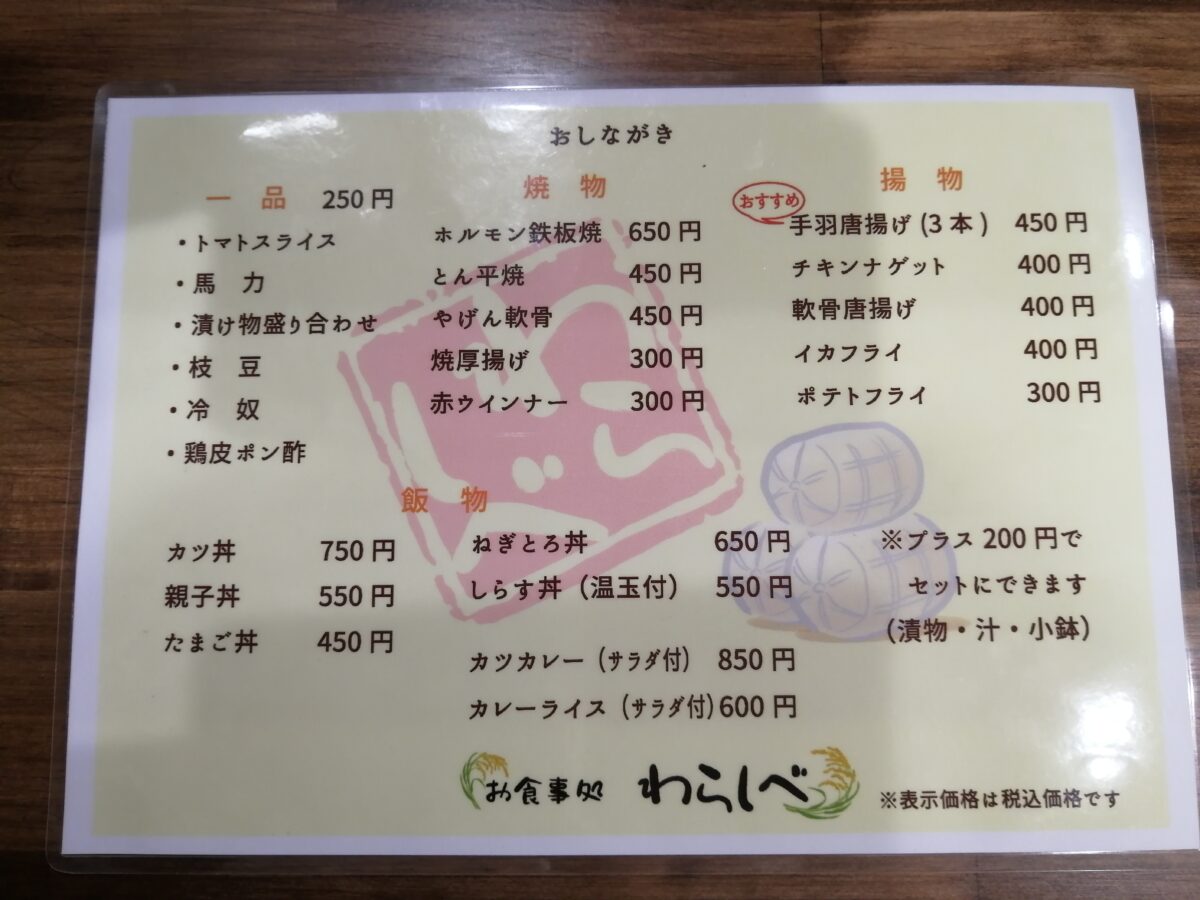 おしながき
一品 250円
・トマトスライス
・馬力
・漬け物盛り合わせ
・枝豆
・冷奴
・鶏皮ポン酢
焼物
ホルモン鉄板焼 650円
とん平焼 450円
やげん軟骨 450円
焼厚揚げ 300円
赤ウインナー 300円
揚物
おすすめ
手羽唐揚げ(3本) 450円
チキンナゲット 400円
軟骨唐揚げ 400円
イカフライ 400円
ポテトフライ 300円
飯物
カツ丼 750円
親子丼 550円
たまご丼 450円
ねぎとろ丼 650円
しらす丼（温玉付） 550円
カツカレー（サラダ付） 850円
カレーライス（サラダ付）600円
※プラス200円で
セットにできます
（漬物・汁・小鉢）
わらじべ
お食事処 わらしべ
※表示価格は税込価格です